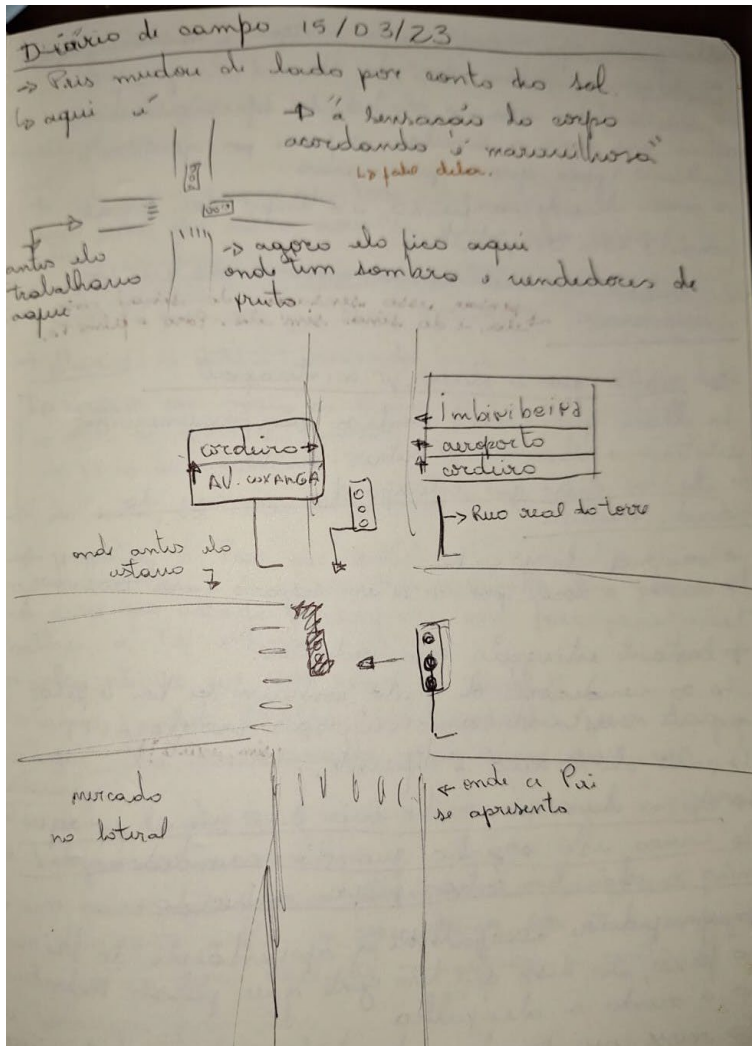 Diário de campo 15/03/23
→ Pris mudou de lado por conta do sol.
↳ aqui é
→ "a sensação do corpo
acordando é maravilhosa"
↳ fala dela.
antes ela
trabalhava
aqui
→ agora ela fica aqui
onde tem sombra e vendedores de
fruta.
← imbiribeira
→ aeroporto
↑ cordeiro
cordeiro →
↑ AV. CAXANGÁ
→ Rua real da torre
onde antes ela
estava
mercado
na lateral
← onde a Pri
se apresenta